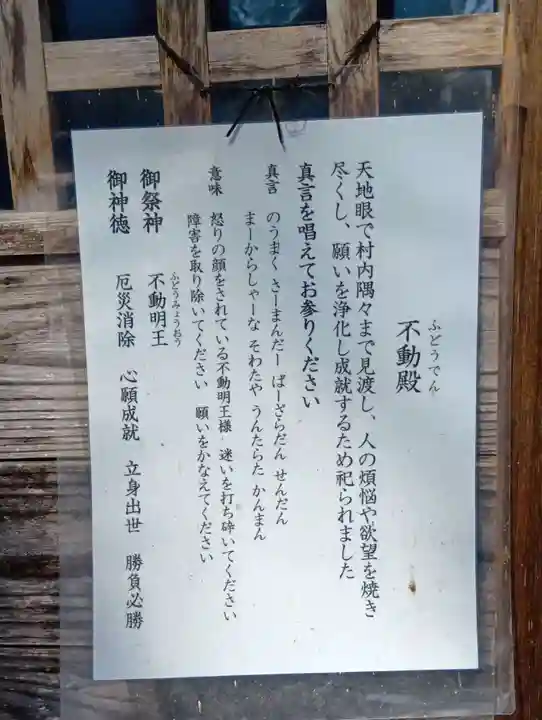 不動殿
ふどうでん
天地眼で村内隅々まで見渡し、人の煩悩や欲望を焼き
尽くし、願いを浄化し成就するため祀られました
真言を唱えてお参りください
真言 のうまく さーまんだー ばーざらだん せんだん
まーからしゃーな そわたや うんたらた かんまん
意味 怒りの顔をされている不動明王様 迷いを打ち砕いてください
障害を取り除いてください 願いをかなえてください
御祭神 不動明王
ふどうみょうおう
御神徳 厄災消除 心願成就 立身出世 勝負必勝